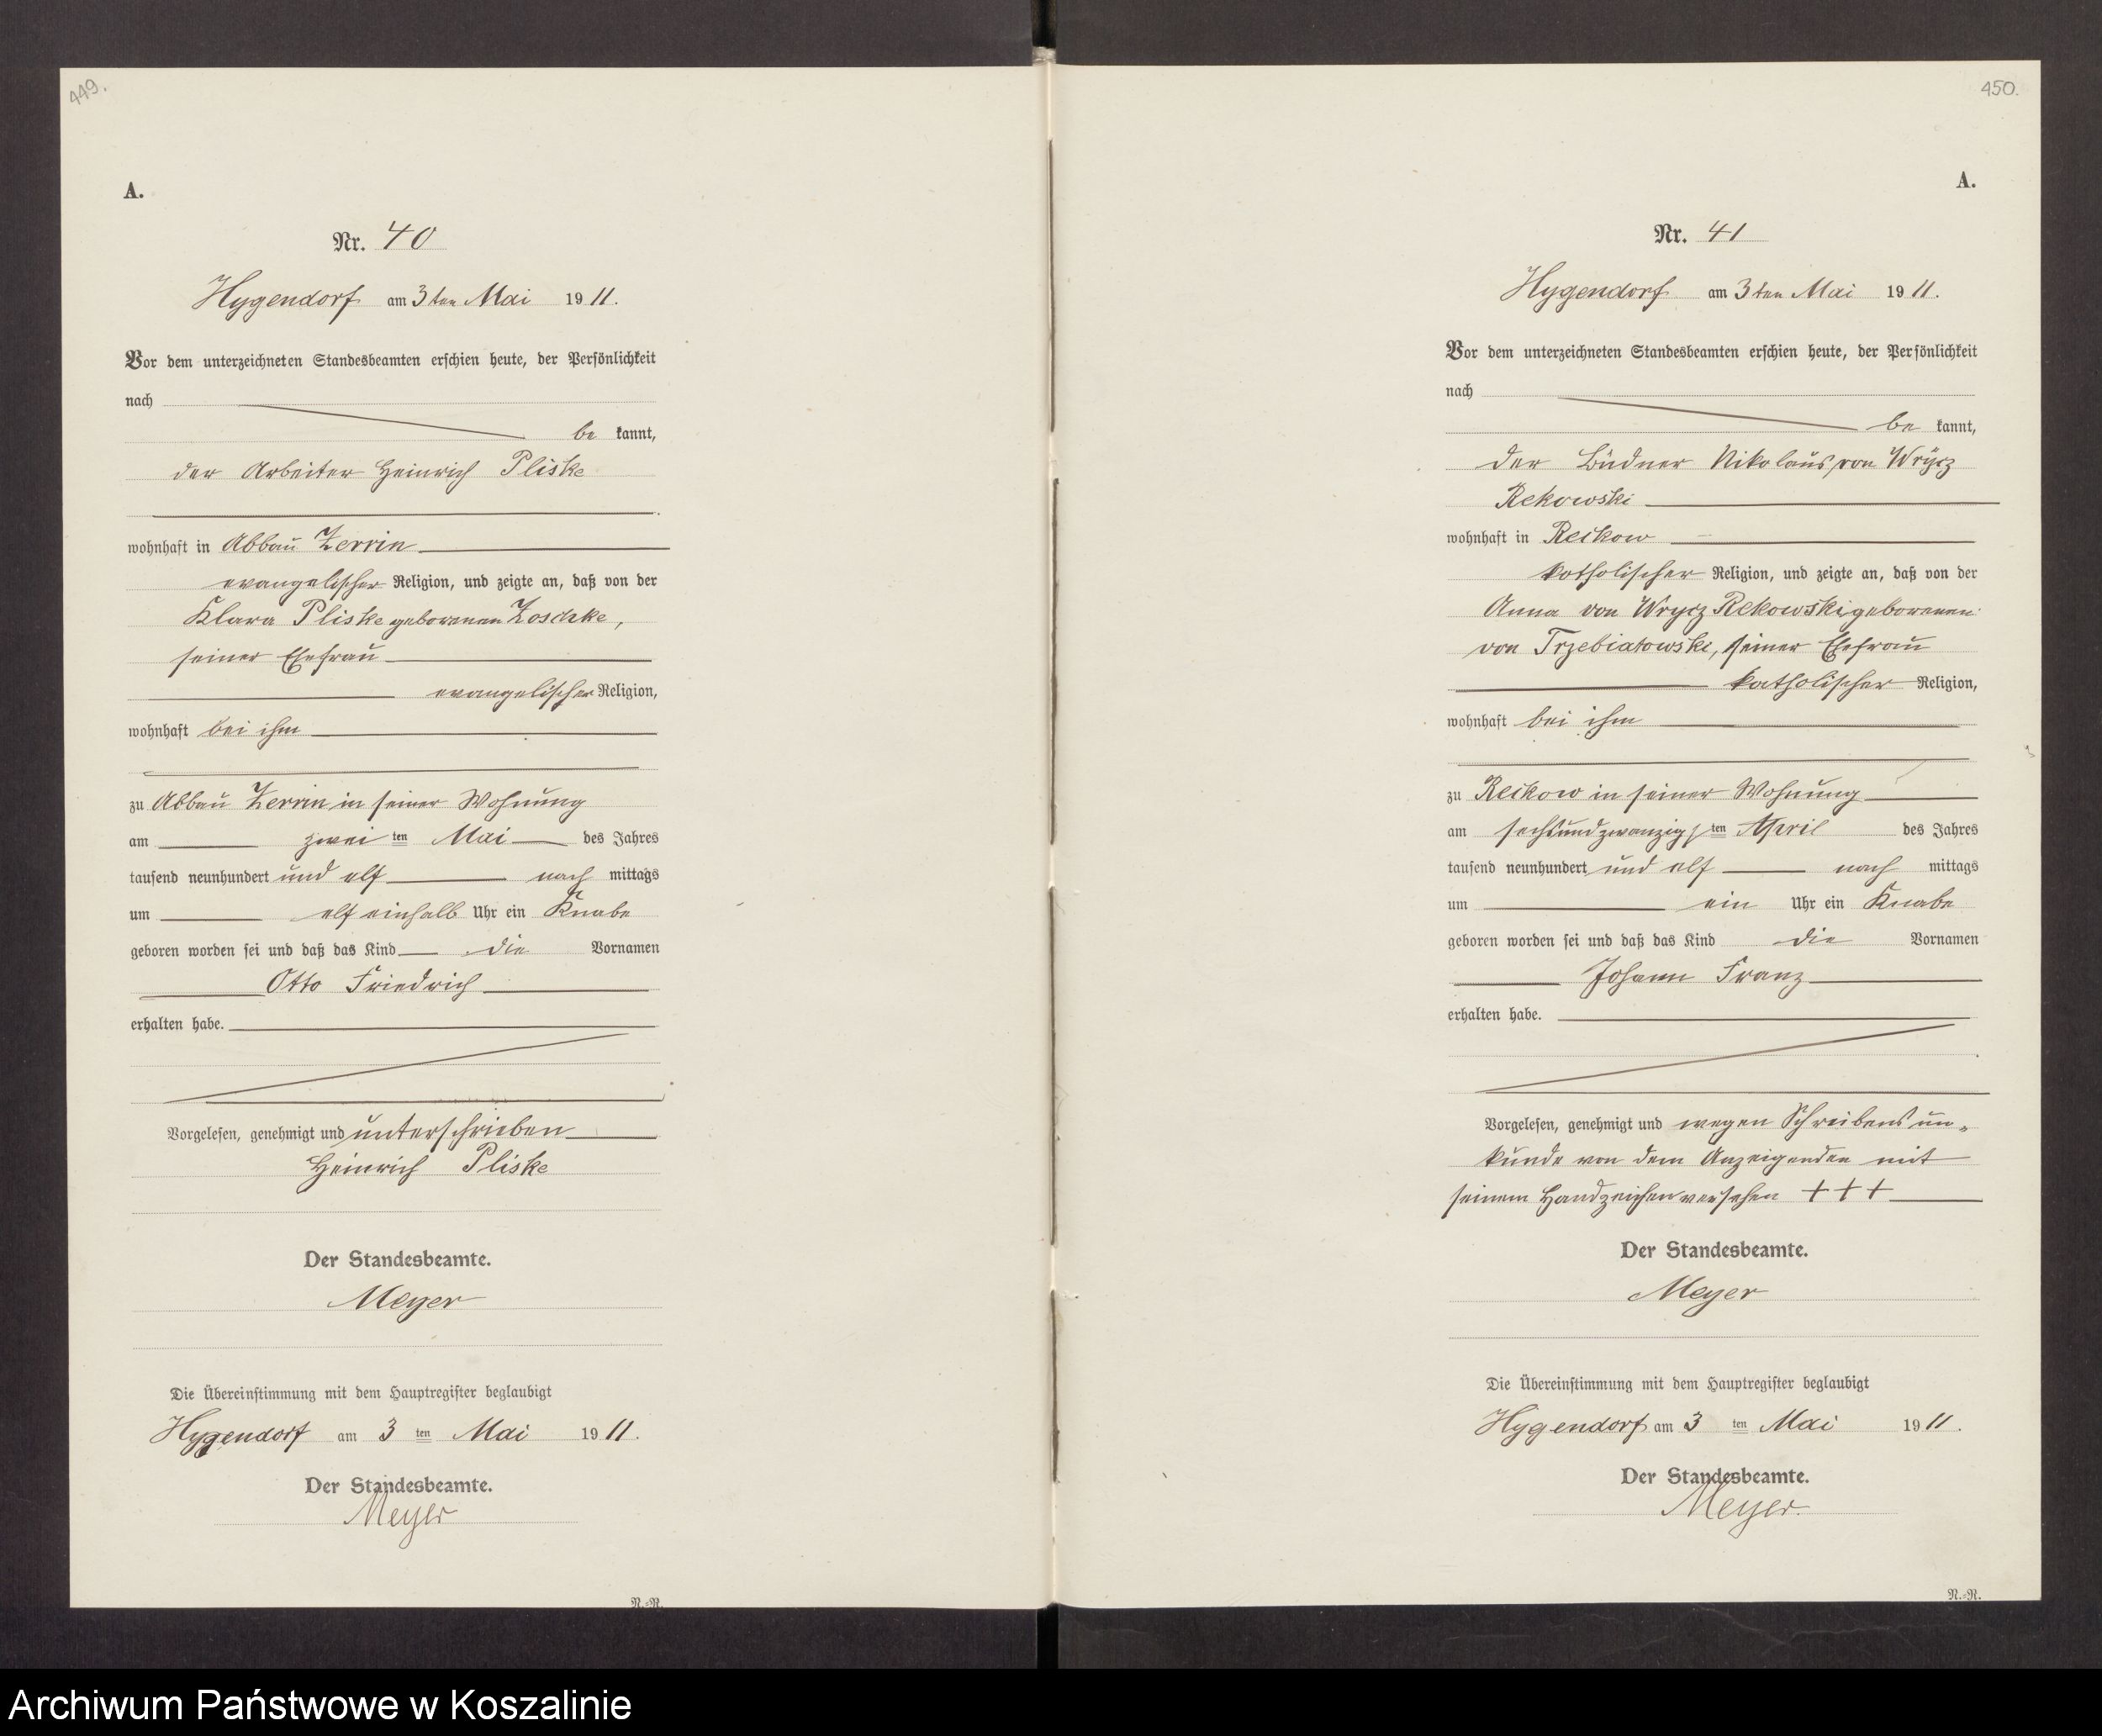 449.
A.
Nr. 40
Hygendorf am 3ten Mai 1911.
Vor dem unterzeichneten Standesbeamten erschien heute, der Persönlichkeit
nach
be kannt,
der Arbeiter Heinrich Pliske
wohnhaft in Abbau Zerrin
evangelischer Religion, und zeigte an, daß von der
Klara Pliske geborenen Zoschke,
seiner Ehefrau
evangelischer Religion,
wohnhaft bei ihm
zu Abbau Zerrin in seiner Wohnung
am zwei ten Mai des Jahres
tausend neunhundert und elf nach mittags
um elf einhalb Uhr ein Knabe
geboren worden sei und daß das Kind die Vornamen
Otto Friedrich
erhalten habe.
Vorgelesen, genehmigt und unterschrieben
Heinrich Pliske
Der Standesbeamte.
Meyer
Die Übereinstimmung mit dem Hauptregister beglaubigt
Hygendorf am 3 ten Mai 1911.
Der Standesbeamte.
Meyer
N.-R.
450.
A.
Nr. 41
Hygendorf am 3ten Mai 1911.
Vor dem unterzeichneten Standesbeamten erschien heute, der Persönlichkeit
nach
be kannt,
der Büdner Nikolaus von Wrycz
Rekowski
wohnhaft in Reckow
katholischer Religion, und zeigte an, daß von der
Anna von Wrycz Rekowski geborenen
von Trzebiatowski, seiner Ehefrau
katholischer Religion,
wohnhaft bei ihm
zu Reckow in seiner Wohnung
am sechsundzwanzigs ten April des Jahres
tausend neunhundert und elf nach mittags
um ein Uhr ein Knabe
geboren worden sei und daß das Kind die Vornamen
Johann Franz
erhalten habe.
Vorgelesen, genehmigt und wegen Schreibensun-
kunde von dem Anzeigenden mit
seinem Handzeichen versehen +++
Der Standesbeamte.
Meyer
Die Übereinstimmung mit dem Hauptregister beglaubigt
Hygendorf am 3 ten Mai 1911.
Der Standesbeamte.
Meyer.
N.-R.
Archiwum Państwowe w Koszalinie